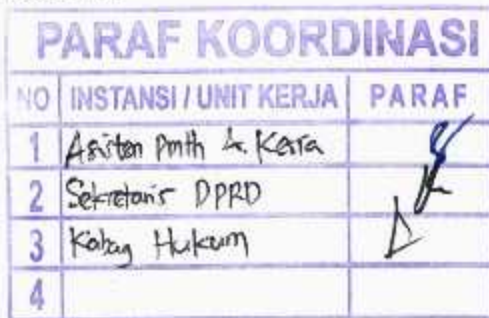 PARAF KOORDINASI
NO INSTANSI / UNIT KERJA PARAF
1 Asisten Pmth & Kesra
2 Sekretaris DPRD
3 Kabag Hukum
4